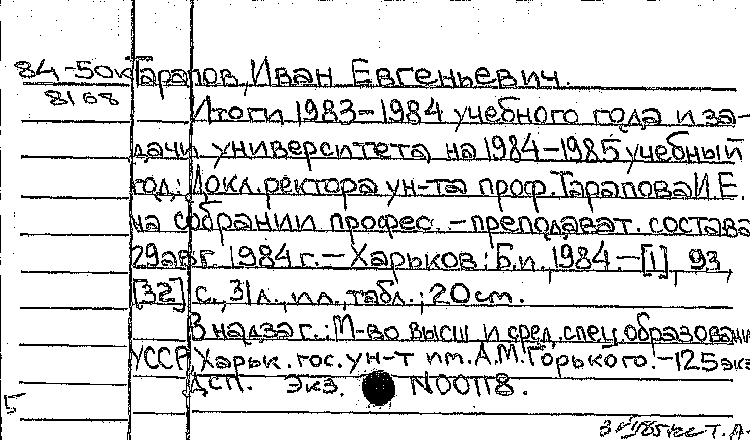 84-50к Тарапов, Иван Евгеньевич.
8108
Итоги 1983-1984 учебного года и за-
дачи университета на 1984-1985 учебный
год: Докл. ректора ун-та проф. Тарапова И.Е.
на собрании профес.-преподават. состава
29 авг. 1984 г. - Харьков: Б.и. 1984. - [1], 93,
[32] с., 31 л., ил., табл.; 20 см.
В надзаг.: М-во высш и сред. спец. образовани
УССР Харьк. гос. ун-т им. А.М. Горького. - 125 экз
ДСП. Экз. N00118.
5